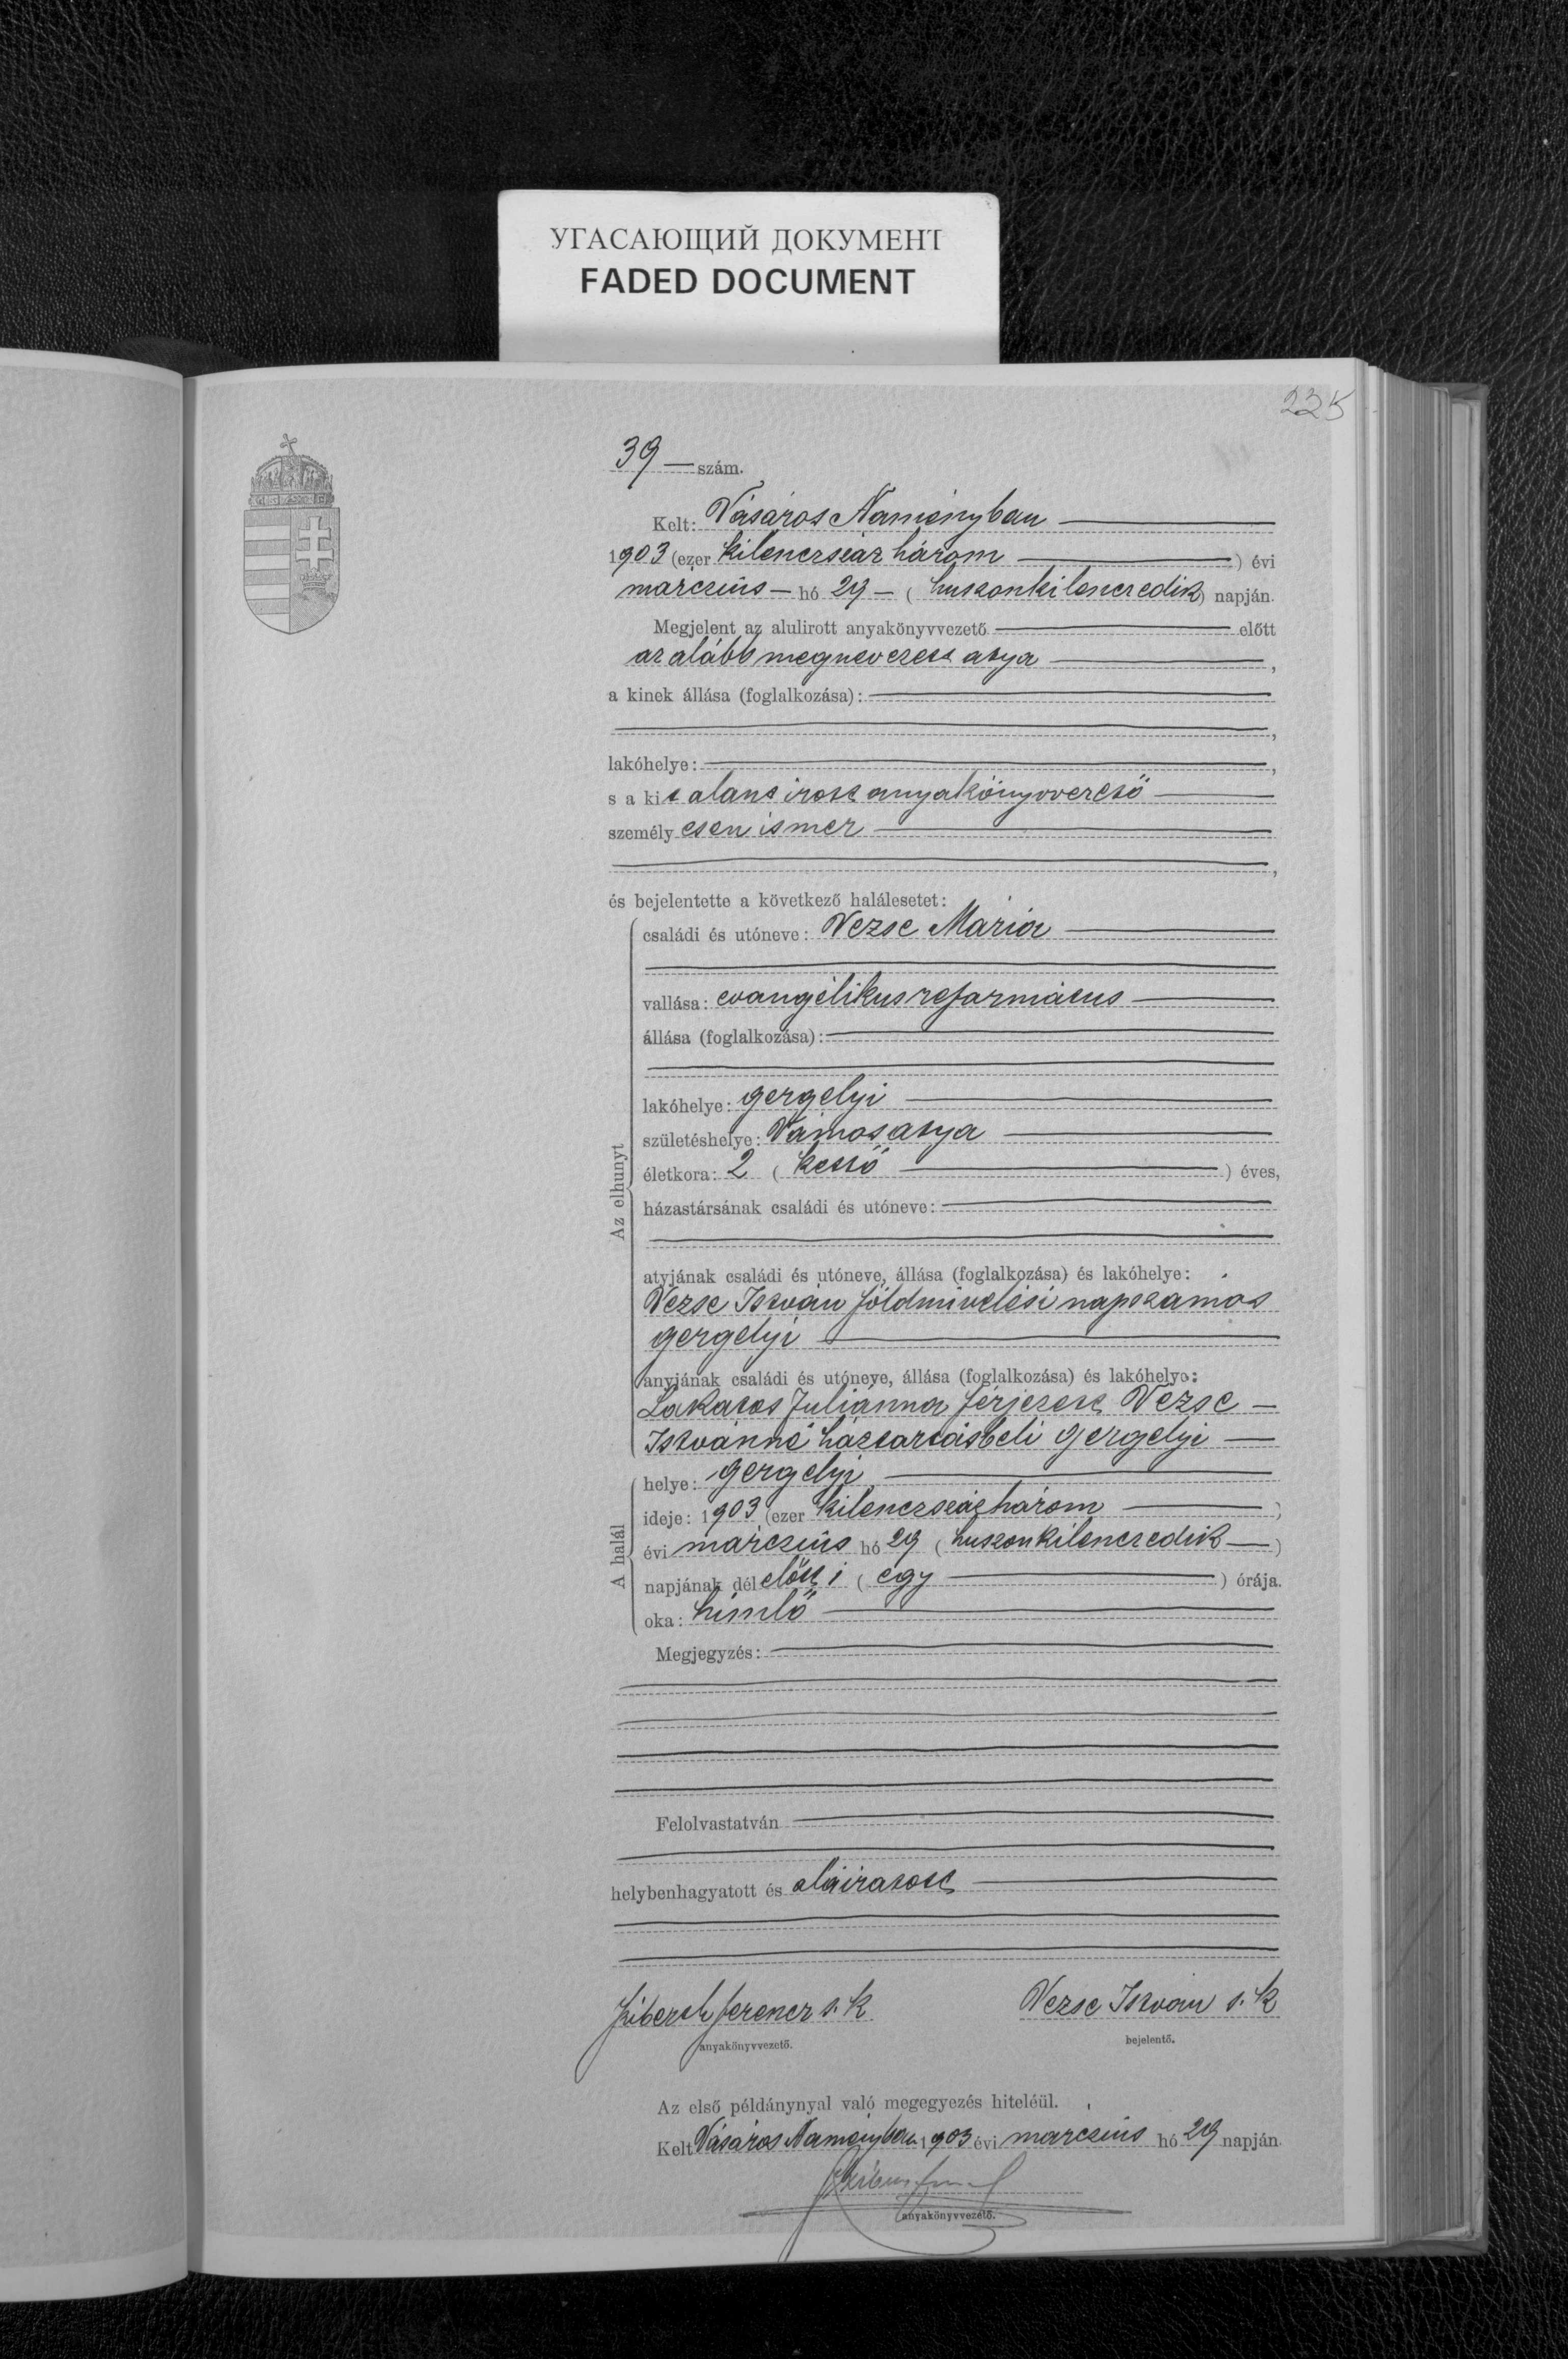 УГАСАЮЩИЙ ДОКУМЕНТ
FADED DOCUMENT
225
39 — szám.
Kelt: Vásáros Naményban
1903 (ezer kilenczszáz három) évi
márczius – hó 29 – (huszonkilenczedik) napján.
Megjelent az alulirott anyakönyvvezető előtt
az alább megnevezett atya,
a kinek állása (foglalkozása):
,
lakóhelye: ,
s a kit alant irott anyakönyvvezető
személyesen ismer
,
és bejelentette a következő halálesetet:
Az elhunyt
családi és utóneve: Vezse Mária
vallása: evangélikus református
állása (foglalkozása):
lakóhelye: gergelyi
születéshelye: Vámosatya
életkora: 2 (kettő) éves,
házastársának családi és utóneve:
atyjának családi és utóneve, állása (foglalkozása) és lakóhelye:
Vezse István földmivelési napszámos
gergelyi
anyjának családi és utóneve, állása (foglalkozása) és lakóhelye:
Lakatos Juliánna férjezett Vezse –
Istvánné háztartásbeli gergelyi –
A halál
helye: gergelyi
ideje: 1903 (ezer kilenczszáz három)
évi márczius hó 29 (huszonkilenczedik –)
napjának délelőtt 1 (egy) órája.
oka: himlő
Megjegyzés:
Felolvastatván
helybenhagyatott és aláiratott
Ferencz s. k. Vezse István s. k
anyakönyvvezető. bejelentő.
Az első példánynyal való megegyezés hiteléül.
Kelt Vásáros Naményban 1903 évi márczius hó 29 napján.
anyakönyvvezető.